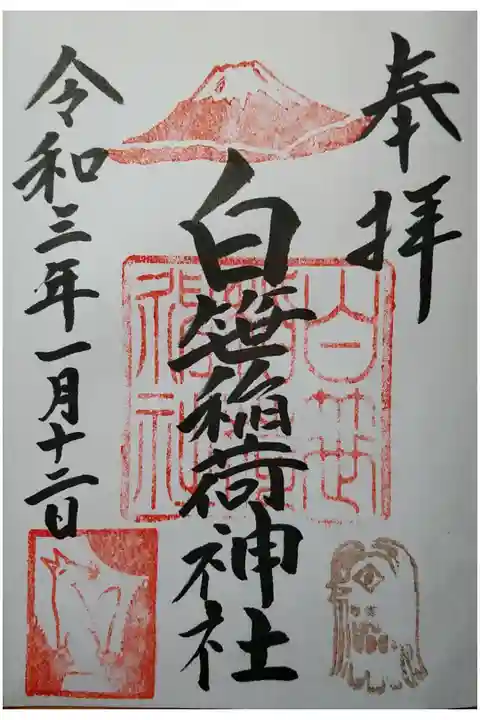 奉拝
白笹稲荷神社
令和三年一月十二日